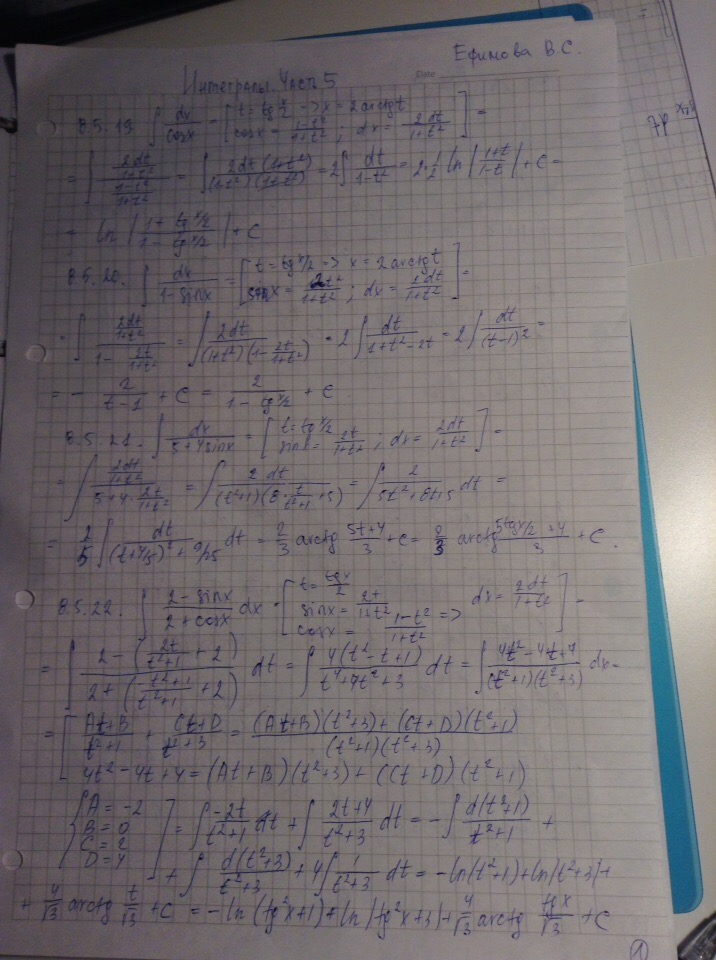 Ефимова В.С.
Интегралы. Часть 5
Date
8.5.19. ∫ dx/cosx = [t = tg x/2 => x = 2arctgt; cosx = (1-t²)/(1+t²); dx = 2dt/(1+t²)] =
= ∫ (2dt/(1+t²))/((1-t²)/(1+t²)) = ∫ 2dt(1+t²)/((1-t²)(1+t²)) = 2∫ dt/(1-t²) = 2·1/2 ln|(1+t)/(1-t)| + C =
= ln|(1+tg x/2)/(1-tg x/2)| + C
8.5.20. ∫ dx/(1-sinx) = [t = tg x/2 => x = 2arctgt; sinx = 2t/(1+t²); dx = 2dt/(1+t²)] =
· ∫ (2dt/(1+t²))/(1 - 2t/(1+t²)) = ∫ 2dt/((1+t²)(1 - 2t/(1+t²))) · 2∫ dt/(1+t²-2t) = 2∫ dt/(t-1)² =
= - 2/(t-1) + C = 2/(1-tg x/2) + C
8.5.21. ∫ dx/(5+4sinx) = [t = tg x/2; sinx = 2t/(1+t²); dx = 2dt/(1+t²)] =
= ∫ (2dt/(1+t²))/(5+4·2t/(1+t²)) = ∫ 2dt/((t²+1)(8·t/(t²+1)+5)) = ∫ 2/(5t²+8t+5) dt =
= 2/5 ∫ dt/((t+4/5)²+9/25) dt = 2/3 arctg (5t+4)/3 + C = 2/3 arctg (5tg x/2 + 4)/3 + C.
8.5.22. ∫ (2-sinx)/(2+cosx) dx · [t = tgx/2; sinx = 2t/(1+t²); cosx = (1-t²)/(1+t²) => dx = 2dt/(1+t²)] =
= ∫ (2-(2t/(t²+1)+2))/(2+(-t²+1)/(t²+1)+2) dt = ∫ 4(t²-t+1)/(t⁴+4t²+3) dt = ∫ (4t²-4t+4)/((t²+1)(t²+3)) dx =
= [(At+B)/(t²+1) + (Ct+D)/(t²+3) = ((At+B)(t²+3)+(Ct+D)(t²+1))/((t²+1)(t²+3))
4t²-4t+4 = (At+B)(t²+3)+(Ct+D)(t²+1)
{A = -2; B = 0; C = 2; D = 4] = ∫ -2t/(t²+1) dt + ∫ (2t+4)/(t²+3) dt = -∫ d(t²+1)/(t²+1) +
+ ∫ d(t²+3)/(t²+3) + 4∫ 1/(t²+3) dt = -ln(t²+1)+ln|t²+3|+
+ 4/√3 arctg t/√3 + C = -ln(tg²x+1)+ln|tg²x+3|+4/√3 arctg tgx/√3 + C
1